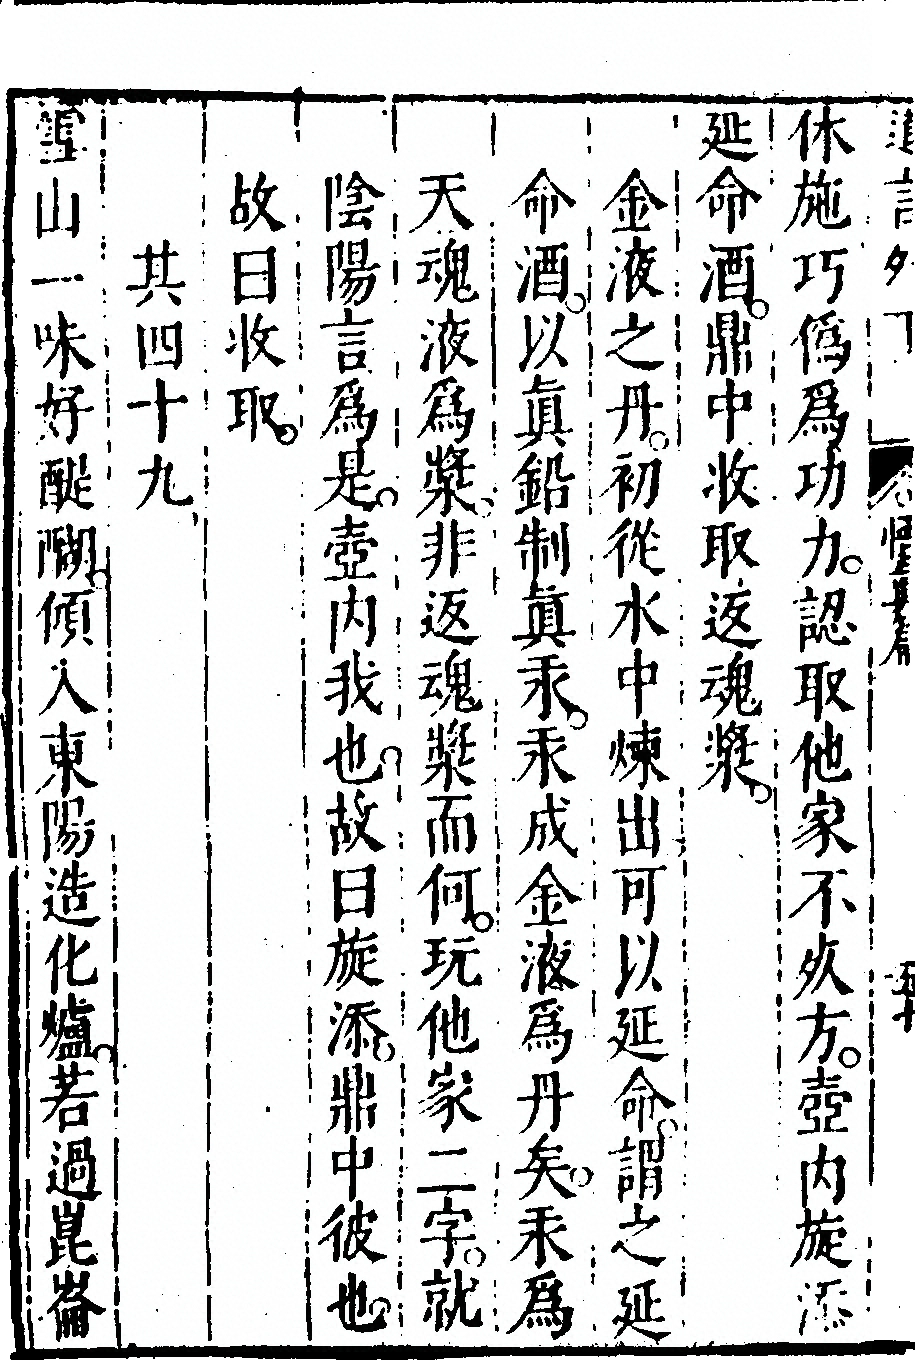 休施巧偽爲功力。認取他家不㱙方。壺内旋添
延命酒。鼎中收取返魂漿。
金液之丹。初從水中煉出可以延命。謂之延
命酒。以眞鉛制眞汞。汞成金液爲丹矣。汞爲
天魂液爲漿。非返魂漿而何。玩他家二字。就
陰陽言爲是。壺内我也。故曰旋添。鼎中彼也。
故曰收取。
其四十九
雪山一味好醍醐。傾入東陽造化爐。若過崑崙